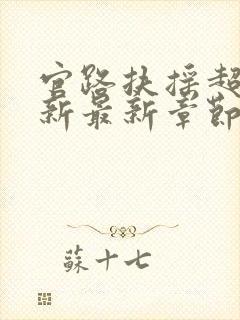 官路扶摇超
新最新章節
蘇十七